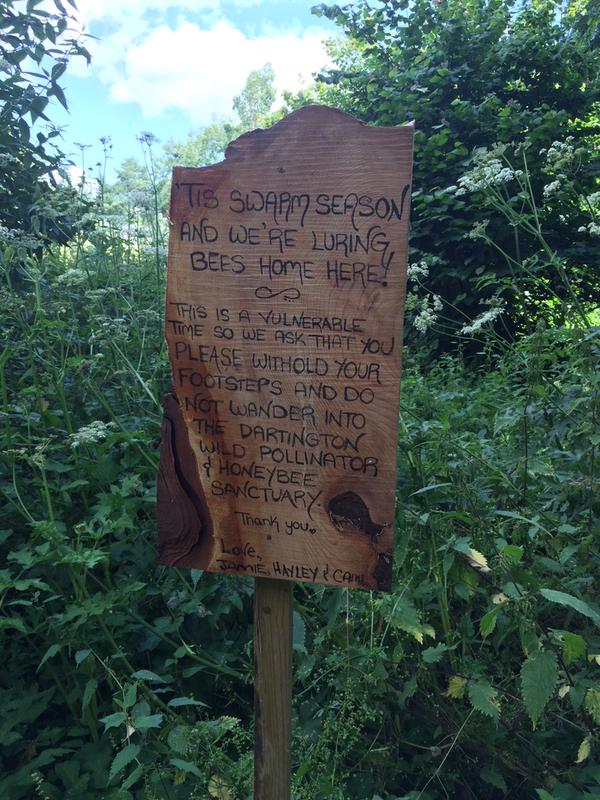 'TIS SWARM SEASON
AND WE'RE LURING
BEES HOME HERE!
THIS IS A VULNERABLE
TIME SO WE ASK THAT YOU
PLEASE WITHOLD YOUR
FOOTSTEPS AND DO
NOT WANDER INTO
THE DARTINGTON
WILD POLLINATOR
& HONEYBEE
SANCTUARY.
Thank you
Love,
JAMIE, HAYLEY &